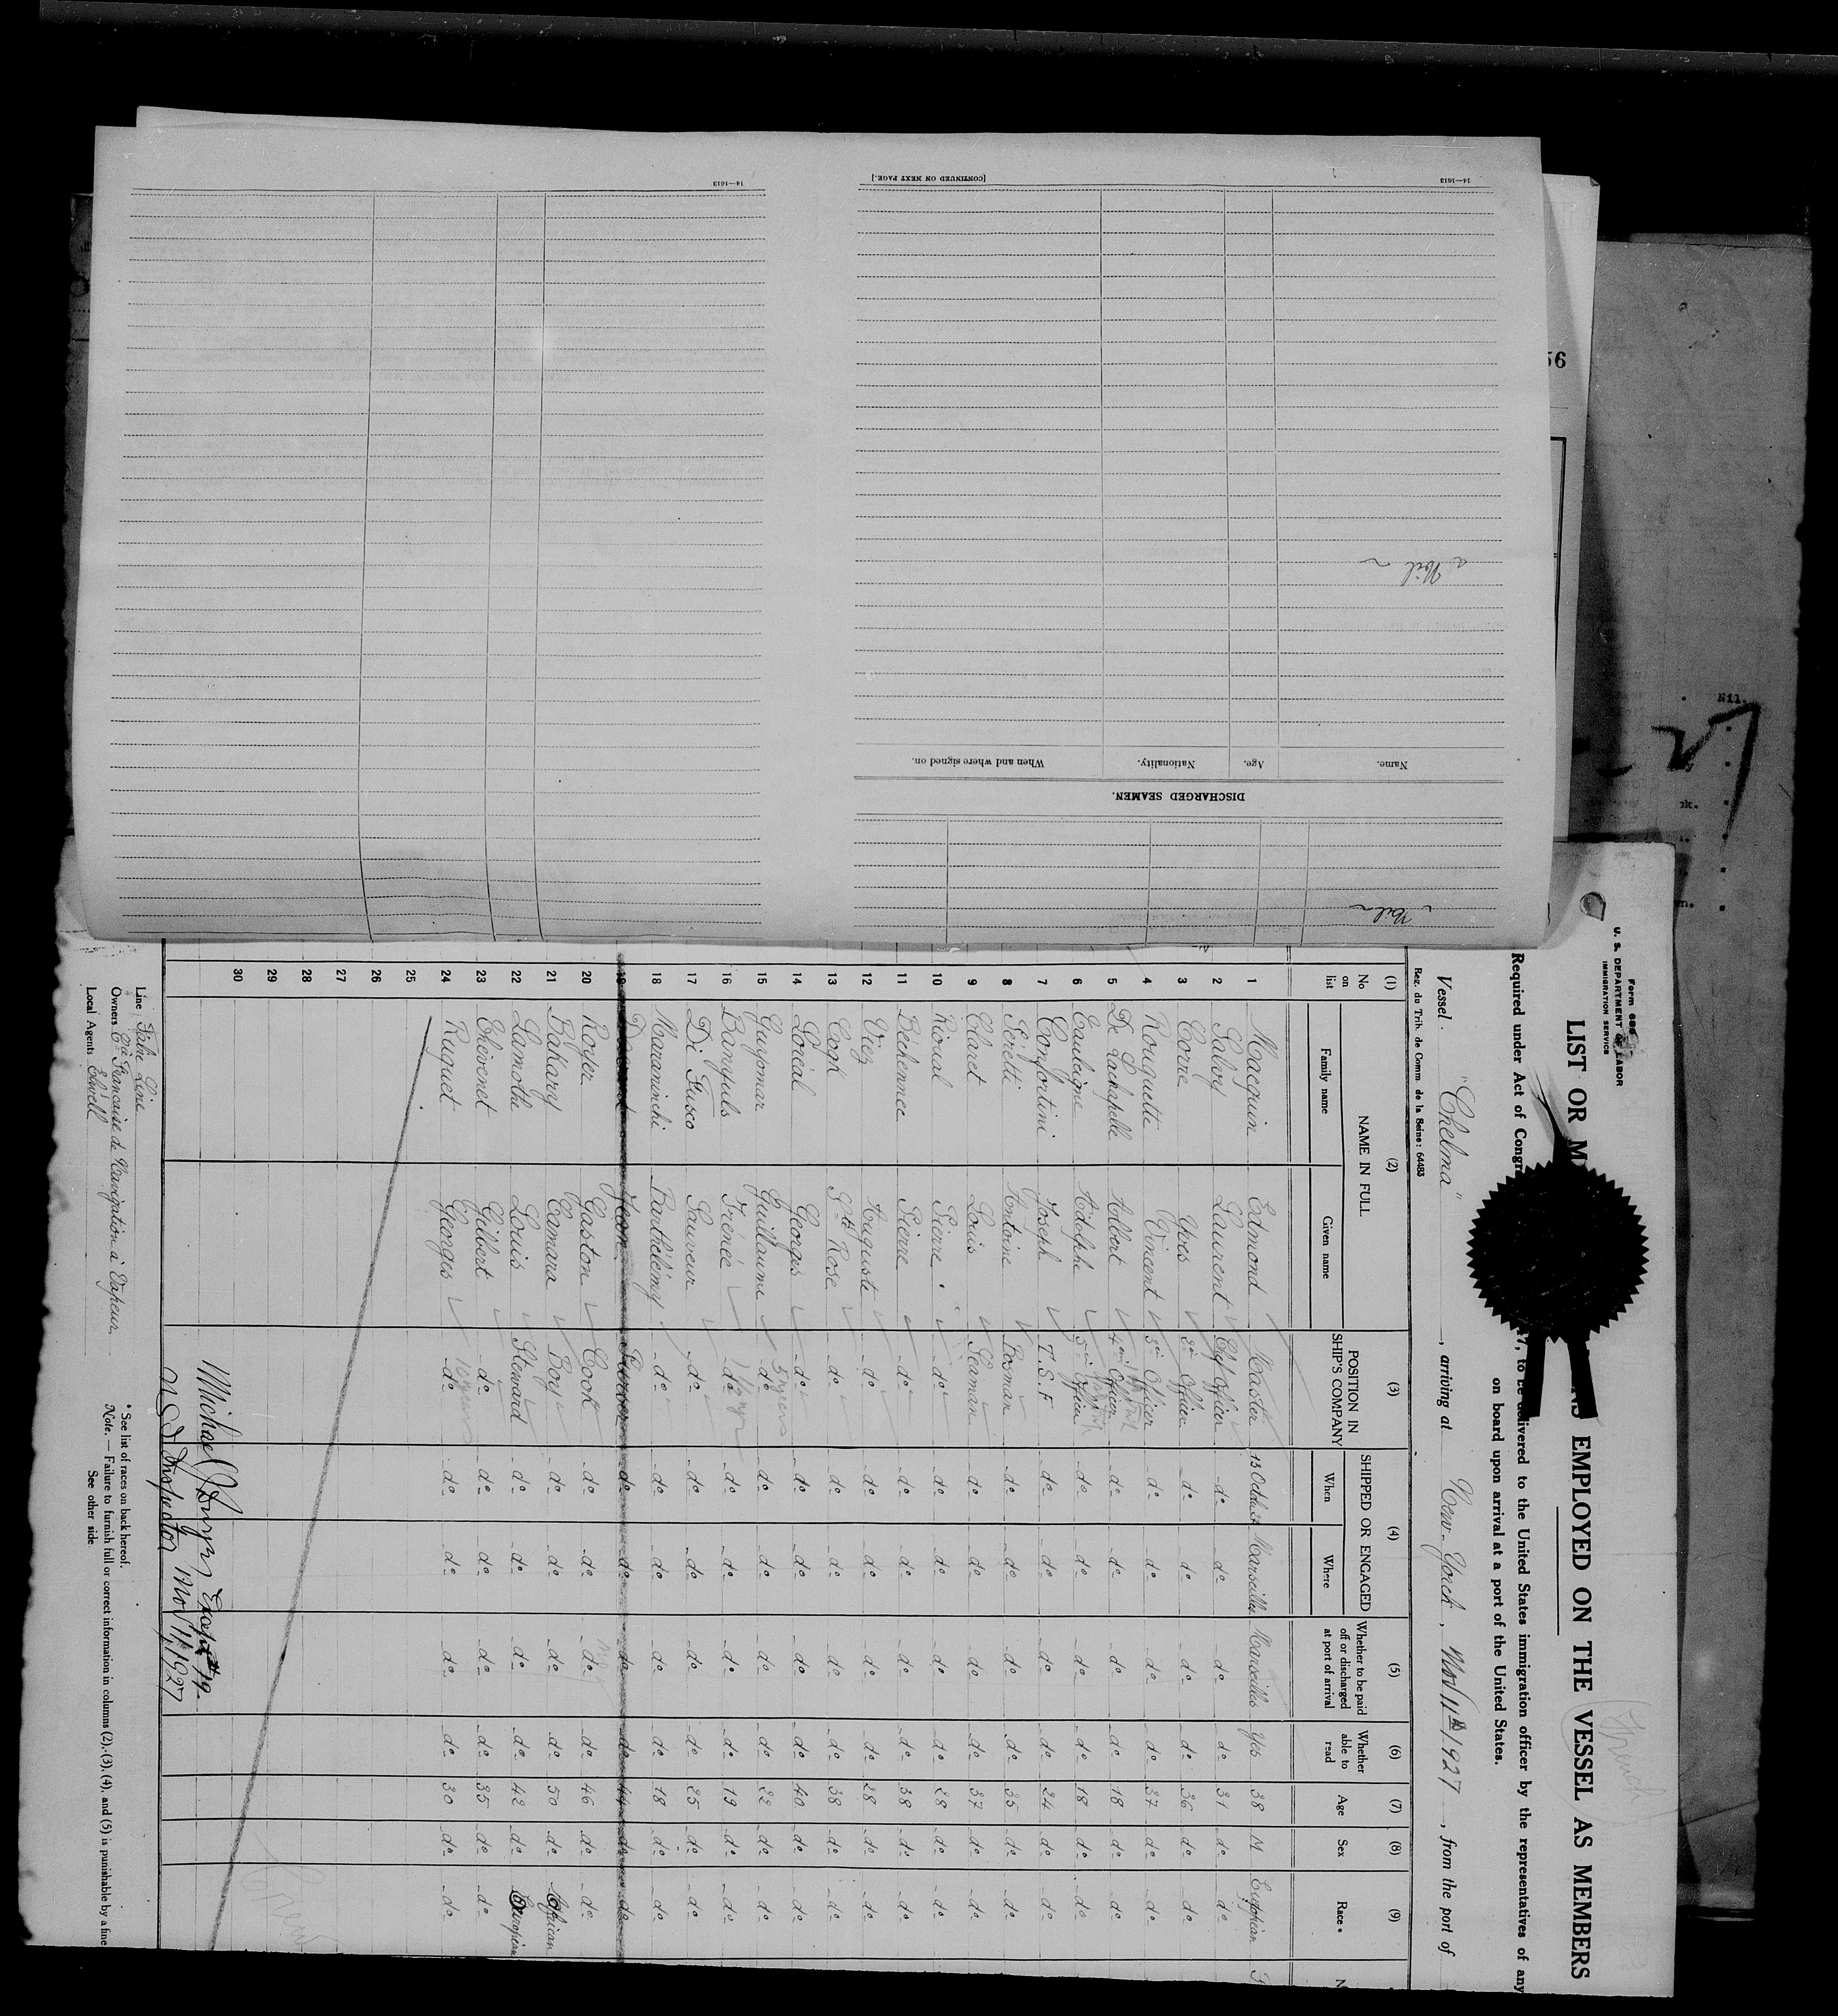 14—1613
[CONTINUED ON NEXT PAGE.]
14—1613
Name.
Age.
Nationality.
When and where signed on.
DISCHARGED SEAMEN.
56
Nil.
Form 689
U. S. DEPARTMENT OF LABOR
IMMIGRATION SERVICE
LIST OR EMPLOYED ON THE VESSEL AS MEMBERS
Required under Act of Congr 17, to be delivered to the United States immigration officer by the representatives of any
on board upon arrival at a port of the United States.
Vessel "Chelma" , arriving at New-Yorck, Nov 11th 1927, from the port of
Reg. du Trib. de Comm. de la Seine : 64483
(1) (2) (3) (4) (5) (6) (7) (8) (9)
No on list NAME IN FULL POSITION IN SHIP'S COMPANY SHIPPED OR ENGAGED Whether to be paid off or discharged at port of arrival Whether able to read Age Sex Race*
Family name Given name When Where
1 Macquin Edmond Master 13 Marseilles Marseilles Yes 38 M
2 Salvy Laurent Chf Officer do do do do 31 do do
3 Corre Yves 2nd Officer do do do do 36 do do
4 Rouquette Vincent 3rd Officer do do do do 37 do do
5 De Lachapelle Albert 4th Officer do do do do 18 do do
6 Cauleigne Adolphe 5th Officer do do do do 18 do do
7 Confortini Joseph T.S.F do do do do 24 do do
8 Séretti Antoine Bosman do do do do 35 do do
9 Claret Louis Seaman do do do do 37 do do
10 Rioual Pierre do do do do do 28 do do
11 Béchennec Pierre do do do do do 38 do do
12 Viez Auguste do do do do do 28 do do
13 Coqk Ste Rose do do do do do 38 do do
14 Loréal Georges do do do do do 40 do do
15 Guyomar Guillaume do do do do do 22 do do
16 Banquls Irénée do do do do do 19 do do
17 Di Fusco Sauveur do do do do do 25 do do
18 Maraninchi Barthélémy do do do do do 18 do do
19 Jean do do do do 44 do do
20 Royer Gaston Cook do do do do 46 do do
21 Bakary Camara Boy do do do do 50 do African
22 Lamothe Louis Steward do do do do 42 do European
23 Chevenet Gilbert do do do do do 35 do do
24 Ruquet Georges do do do do do 30 do do
25
26
27
28
29
30
Michael J Except #19
U S Inspector Nov 11, 1927
Line Fabre Line
Owners Cie Francaise de Navigation à Vapeur.
Local Agents Elwell
* See list of races on back hereof.
Note. — Failure to furnish full or correct information in columns (2), (3), (4), and (5) is punishable by a fine
See other side.